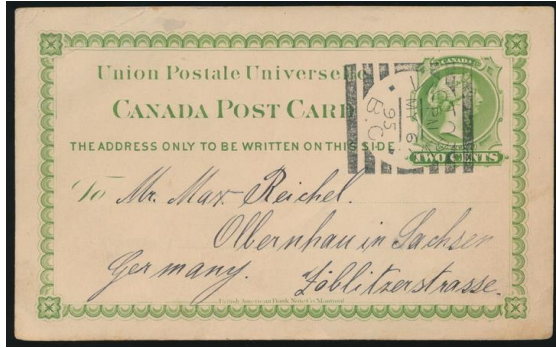 Union Postale Universelle
CANADA
CANADA POST CARD
THE ADDRESS ONLY TO BE WRITTEN ON THIS SIDE
TWO CENTS
95
B.C.
To Mr. Max Reichel.
Olbernhau in Sachsen
Germany. Zöblitzerstrasse.
British American Bank Note Co. Montreal